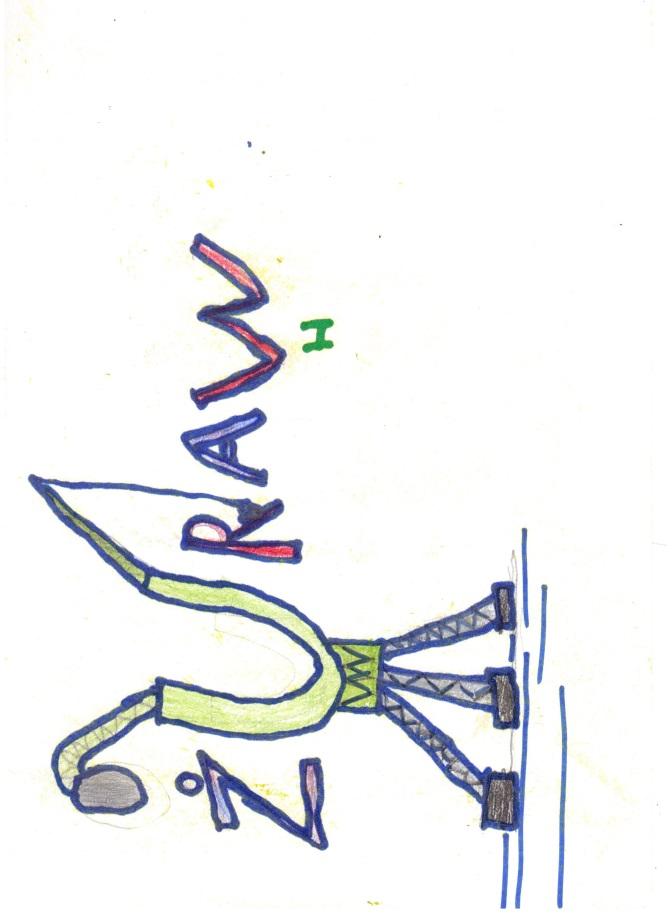 ŻURAW
I